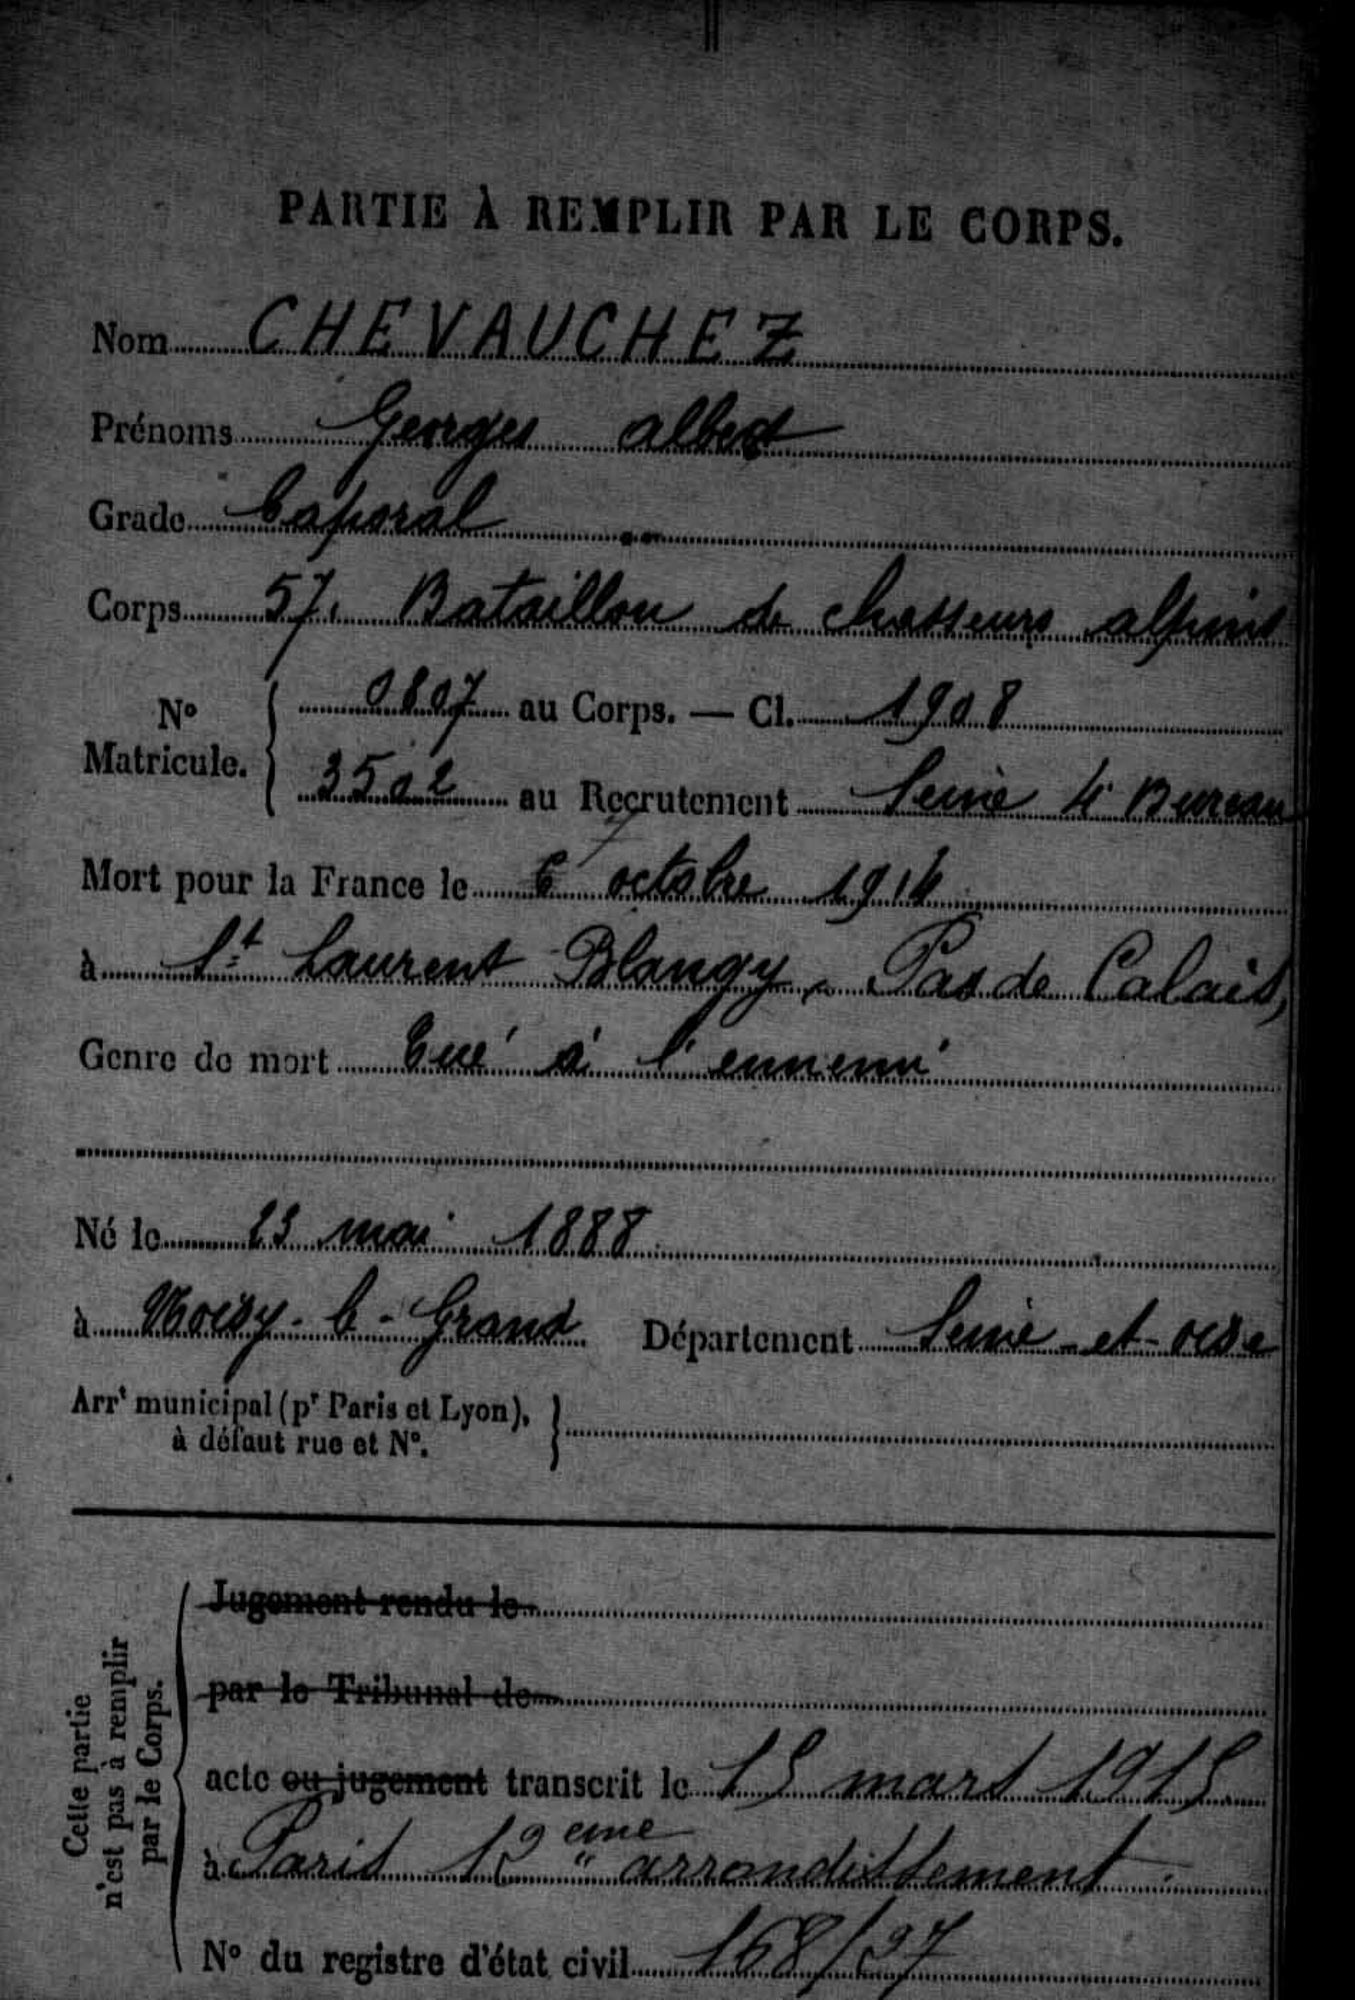 PARTIE À REMPLIR PAR LE CORPS.
Nom CHEVAUCHEZ
Prénoms Georges albert
Grade Caporal
Corps 57. Bataillon de chasseurs alpins
No Matricule. { 0807 au Corps. — Cl. 1908
3502 au Recrutement Seine 4e Bureau
7
Mort pour la France le 6 octobre 1914
à St Laurent Blangy, Pas de Calais,
Genre de mort Tué à l'ennemi
Né le 23 mai 1888
à Noisy-le-Grand Département Seine-et-oise
Arrt municipal (pr Paris et Lyon), à défaut rue et No. }
Cette partie n'est pas à remplir par le Corps.
Jugement rendu le
par le Tribunal de
acte ou jugement transcrit le 15 mars 1915
à Paris 12eme arrondissement.
No du registre d'état civil 168/97